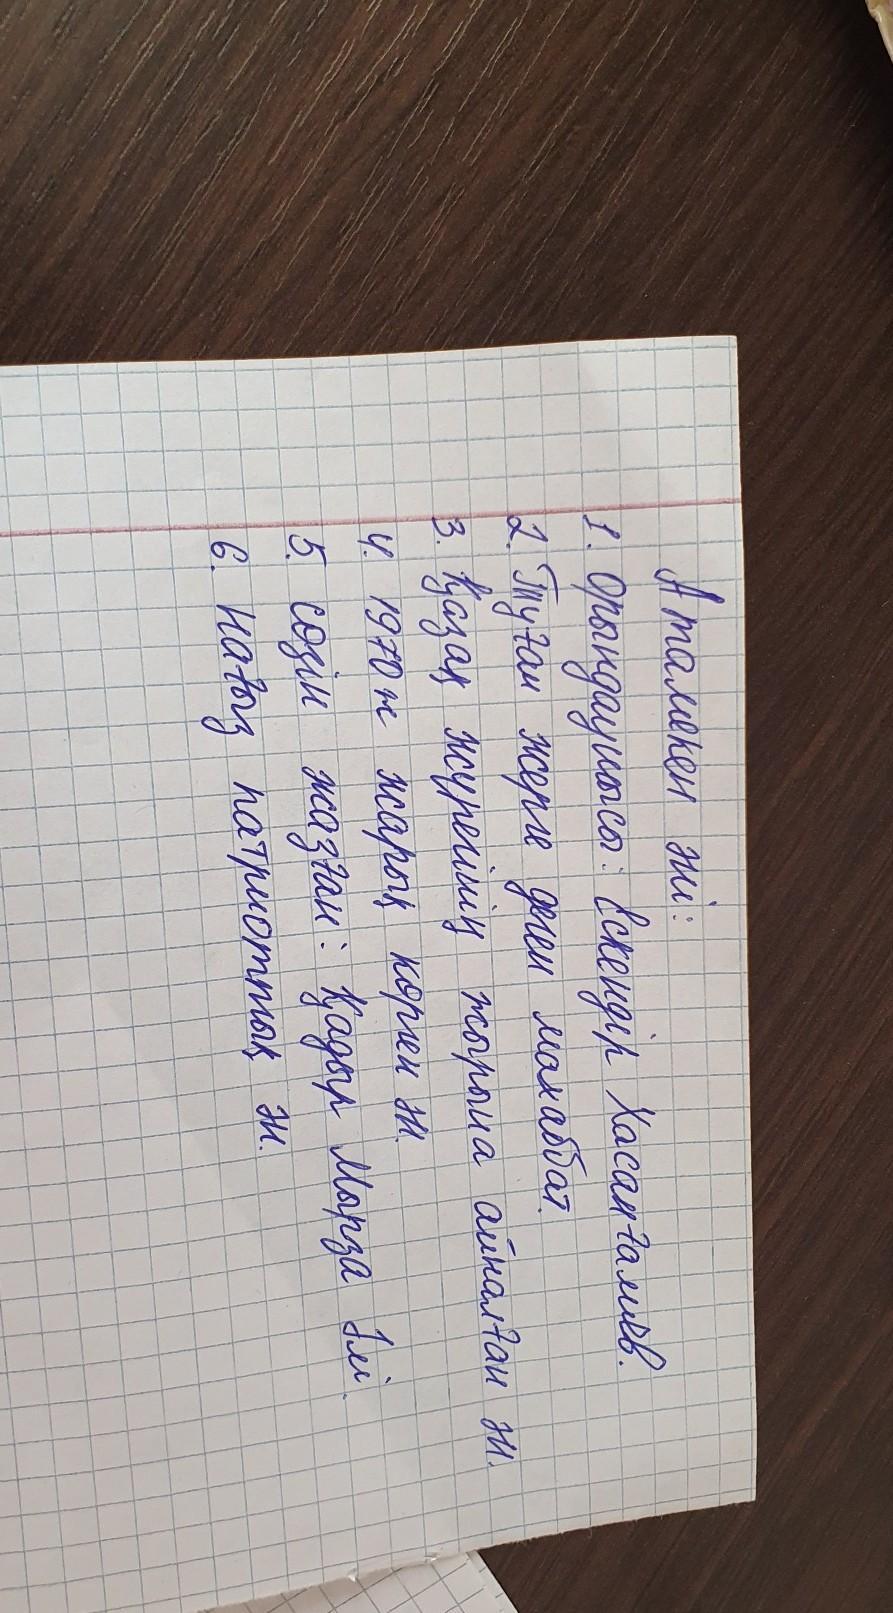 Атамекен әні:
1. Орындаушысы: Ескендір Хасанғалиев.
2. Туған жерге деген махаббат.
3. Қазақ жүрегінің жырына айналған ән.
4. 1970ж жарық көрген ән.
5. сөзін жазған: Қадыр Мырза Әлі.
6. Нағыз патриоттық ән.